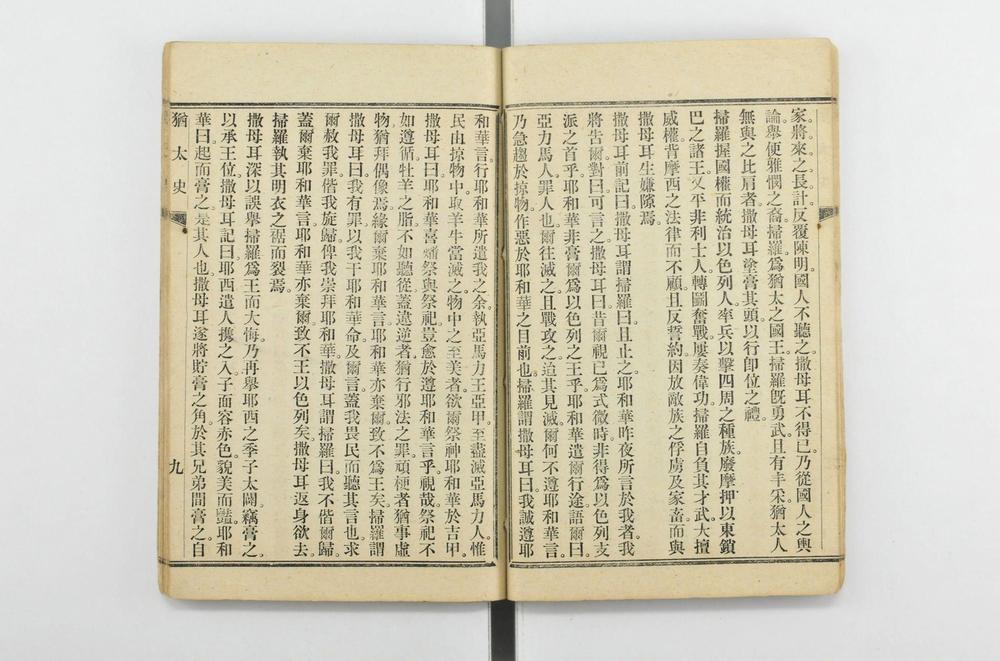 家將來之長計反覆陳明國人不聽之撒母耳不得已乃從國人之輿
論舉便雅憫之裔掃羅爲猶太之國王掃羅旣勇武且有丰采猶太人
無與之比肩者撒母耳塗膏其頭以行卽位之禮
掃羅握國權而統治以色列人率兵以擊四周之種族廢摩押以東鎖
巴之諸王又平非利士人轉圖奮戰屢奏偉功掃羅自負其才武大擅
威權背摩西之法律而不顧且反誓約因放敵族之俘虜及家畜而與
撒母耳生嫌隙焉
撒母耳前記曰撒母耳謂掃羅曰且止之耶和華昨夜所言於我者我
將告爾對曰可言之撒母耳曰昔爾視已爲式微時非得爲以色列支
派之首乎耶和華非膏爾爲以色列之王乎耶和華遣爾行途語爾曰
亞力馬人罪人也爾往滅之且戰攻之迨其見滅爾何不遵耶和華言
乃急趨於掠物作惡於耶和華之目前也掃羅謂撒母耳曰我誠遵耶
和華言行耶和華所遣我之余執亞馬力王亞甲至盡滅亞馬力人惟
民由掠物中取羊牛當滅之物中之至美者欲爾祭神耶和華於吉甲
撒母耳曰耶和華喜燔祭與祭祀豈愈於遵耶和華言乎視哉祭祀不
如遵循牡羊之脂不如聽從蓋違逆者猶行邪法之罪頑梗者猶事虛
物猶拜偶像焉緣爾棄耶和華言耶和華亦棄爾致不爲王矣掃羅謂
撒母耳曰我有罪以我干耶和華命及爾言蓋我畏民而聽其言也求
爾赦我罪偕我旋歸俾我崇拜耶和華撒母耳謂掃羅曰我不偕爾歸
蓋爾棄耶和華言耶和華亦棄爾致不王以色列矣撒母耳返身欲去
掃羅執其明衣之裾而裂焉
撒母耳深以誤舉掃羅爲王而大悔乃再舉耶西之季子太闢竊膏之
以承王位撒母耳記曰耶西遣人攜之入子面容赤色貌美而豔耶和
華曰起而膏之是其人也撒母耳遂將貯膏之角於其兄弟間膏之自
猶太史 九